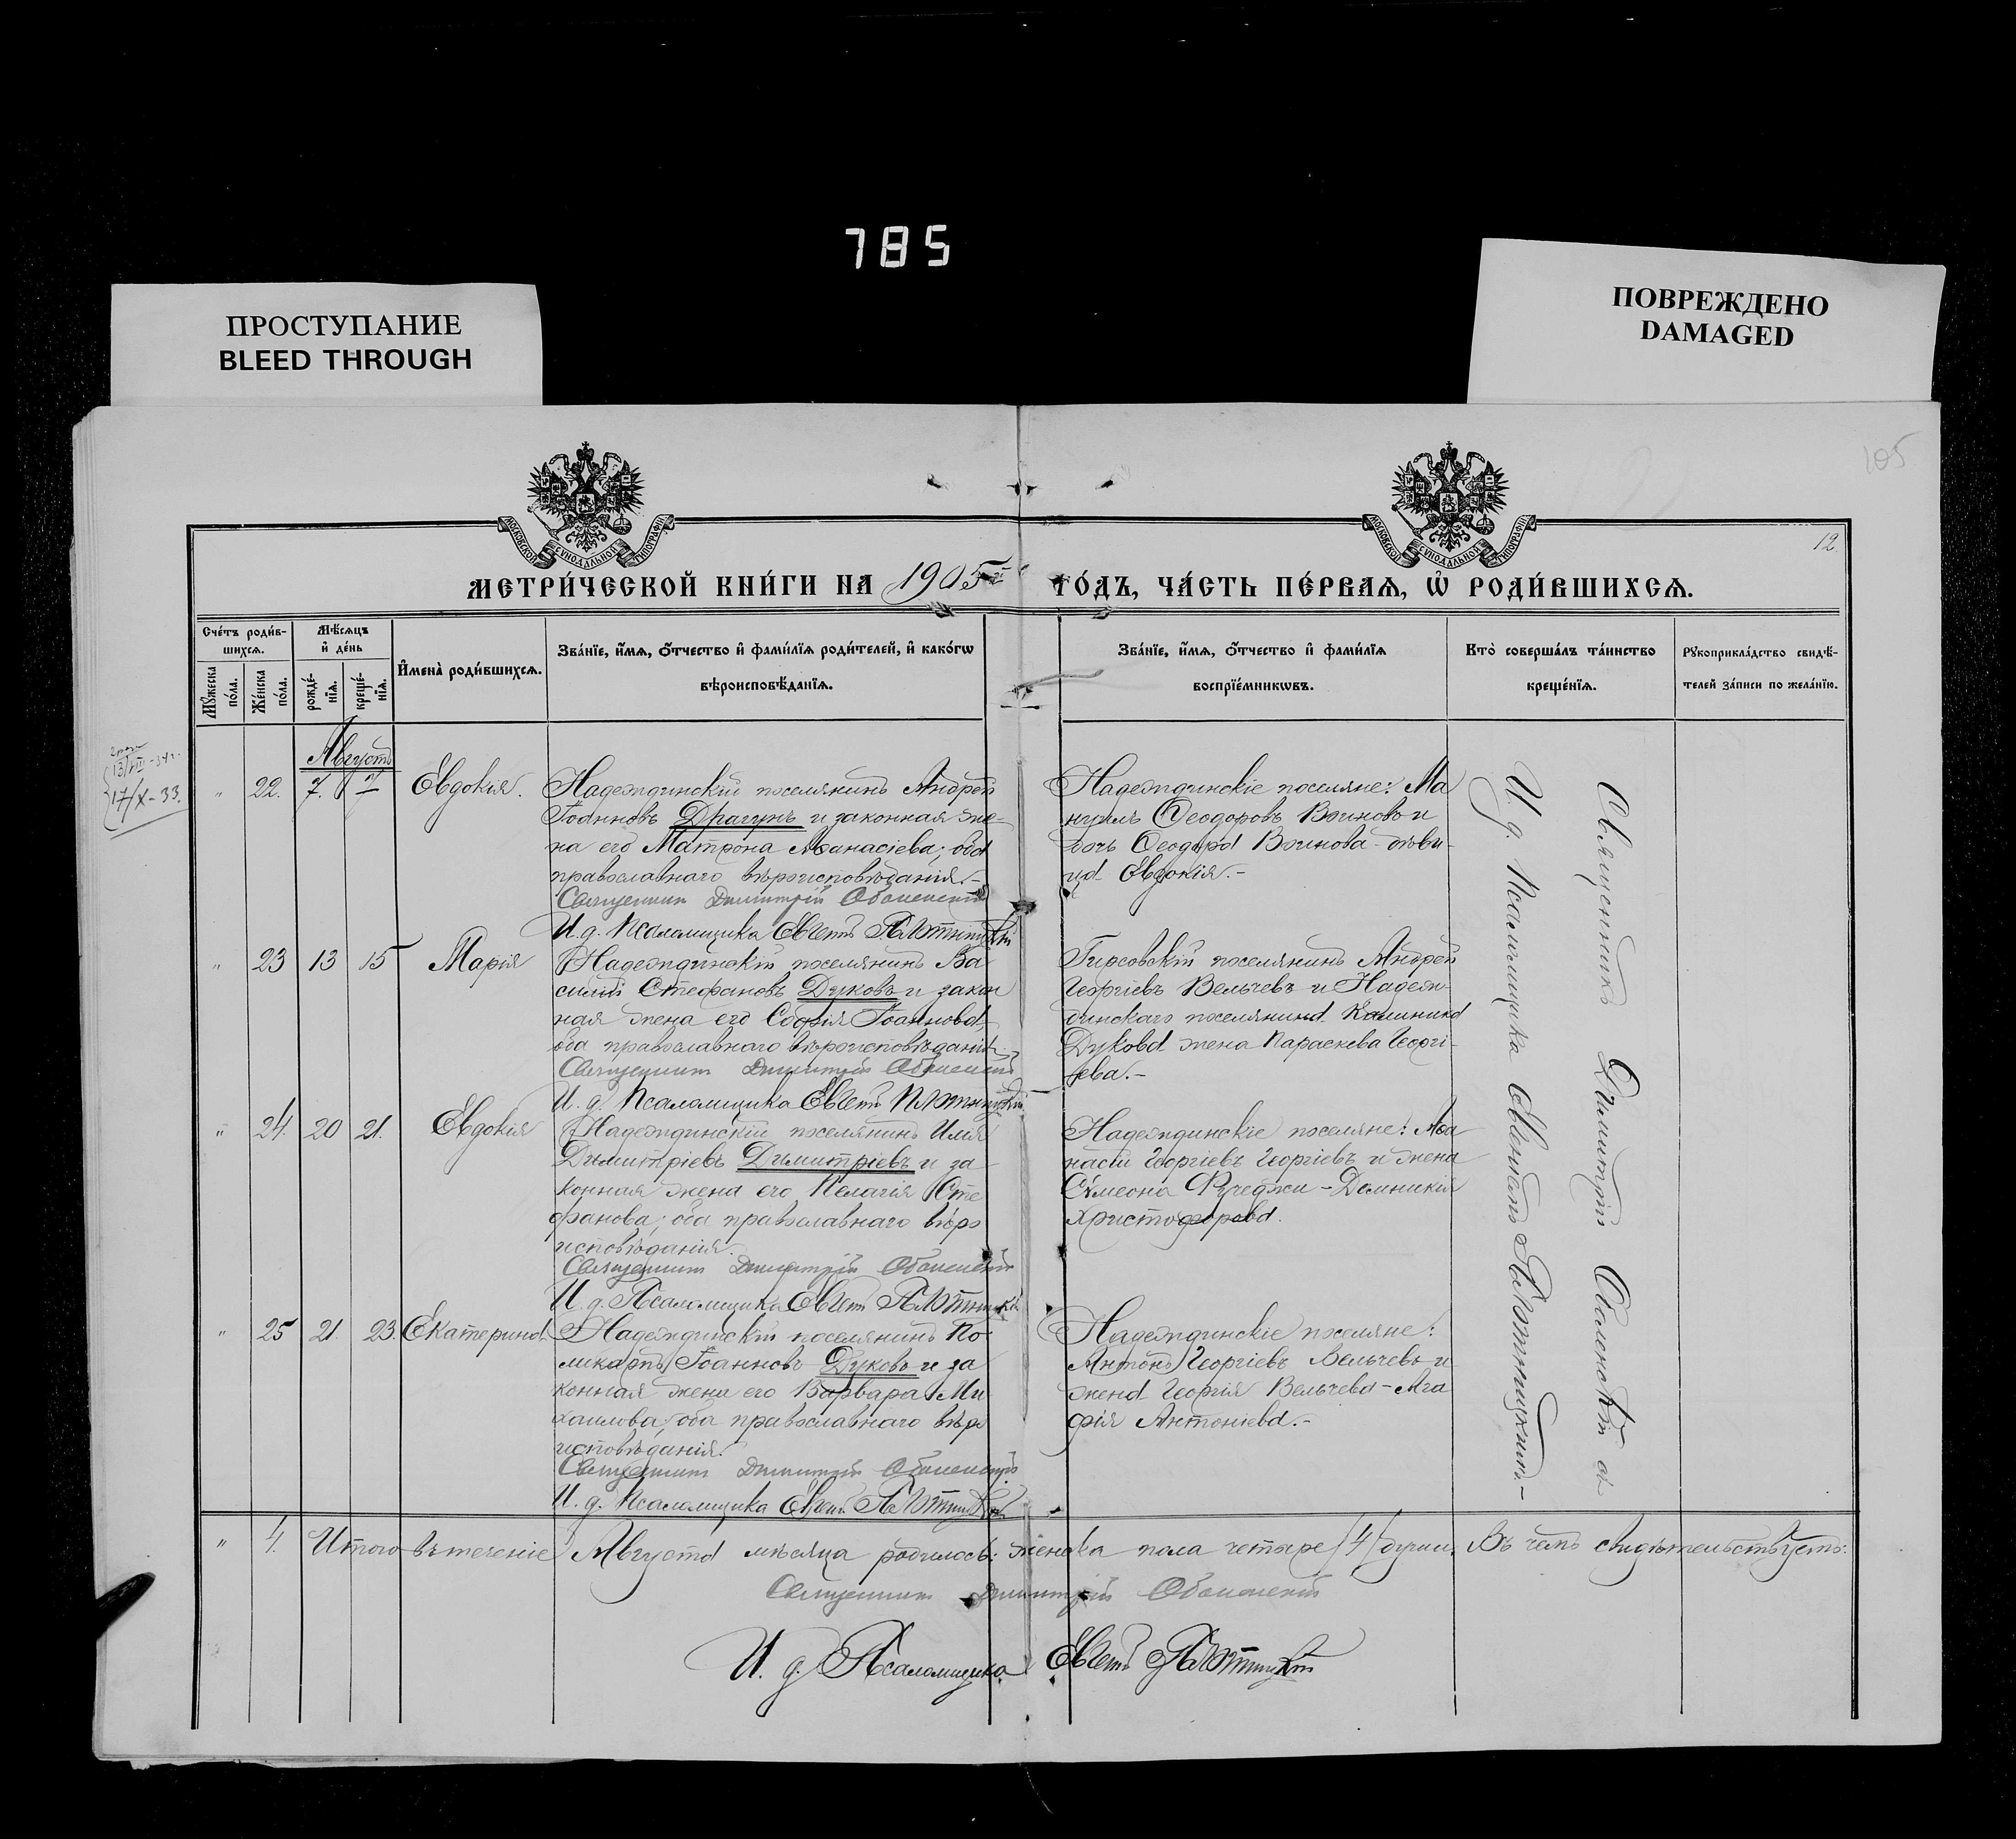 785
ПРОСТУПАНИЕ
BLEED THROUGH
ПОВРЕЖДЕНО
DAMAGED
105
12.
МОСКОВСКОЙ СѴНОДАЛЬНОЙ ТИПОГРАФІИ
МОСКОВСКОЙ СѴНОДАЛЬНОЙ ТИПОГРАФІИ
МЕТРИ́ЧЕСКОЙ КНИ́ГИ НА 1905й ГО́ДЪ, ЧА́СТЬ ПЕ́РВАѦ, Ѡ҆ РОДИ́ВШИХСѦ.
Сче́тъ роди́в-
шихсѧ.
Мꙋ́жеска по́ла.
Же́нска по́ла.
Мѣ́сѧцъ
и҆ де́нь
рожде́-
нїѧ.
креще́-
нїѧ.
И҆мена̀ роди́вшихсѧ.
Зва́нїе, и҆́мѧ, ѻ҆́тчество и҆ фами́лїѧ роди́телей, и҆ како́гѡ
вѣроисповѣ́данїѧ.
Зва́нїе, и҆́мѧ, ѻ҆́тчество и҆ фами́лїѧ
воспрїе́мникѡвъ.
Кто̀ соверша́лъ та́инство
креще́нїѧ.
Рꙋкоприкла́дство свидѣ́-
телей за́писи по жела́нїю.
Августъ
17/X-33.
" 22. 7. 7 Евдокія.
Надеждинскій поселянинъ Андрей
Іоанновъ Драгунъ и законная же-
на его Матрона Аѳанасіева; оба
православнаго вѣроисповѣданія.-
Священникъ Димитрій Оболенскій
И. д. Псаломщика Евгеній
Надеждинскіе поселяне: Ма
нуилъ Ѳеодоровъ Воиновъ и
дочь Ѳеодора Воинова - дѣви-
ца Евдокія.-
" 23 13 15 Марія
Надеждинскій поселянинъ Ва
силій Стефановъ Дуковъ и закон
ная жена его Софія Іоаннова
оба православнаго вѣроисповѣданія.
Священникъ Димитрій Оболенскій
И. д. Псаломщика Евгеній
Гирсовскій поселянинъ Андрей
Георгіевъ Вельчевъ и Надеж-
динскаго поселянина Калиника
Дукова жена Параскева Георгі-
ева.-
" 24. 20 21. Евдокія
Надеждинскій поселянинъ Илія
Димитріевъ Димитріевъ и за-
конная жена его Пелагія Сте
фанова; оба православнаго вѣро
исповѣданія.
Священникъ Димитрій Оболенскій
И. д. Псаломщика Евгеній
Надеждинскіе поселяне: Аѳа
насій Георгіевъ Георгіевъ и жена
Сѵмеона - Домникія
Христофорова.
" 25 21. 23. Екатерина.
Надеждинскій поселянинъ По-
ликарпъ Іоанновъ Дуковъ и за
конная жена его Варвара Ми
хаилова; оба православнаго вѣро
исповѣданія.
Священникъ Димитрій Оболенскій
И. д. Псаломщика Евгеній
Надеждинскіе поселяне:
Антонъ Георгіевъ Вельчевъ и
жена Георгія Вельчева - Ага
фія Антоніева.-
Священникъ Димитрій Оболенскій съ
И. д. Псаломщика Евгеніемъ
" 4. Итого въ теченіе Августа мѣсяца родилось: женска пола четыре /4/ души. Въ чемъ свидѣтельствуетъ:
Священникъ Димитрій Оболенскій
И. д. Псаломщика Евгеній